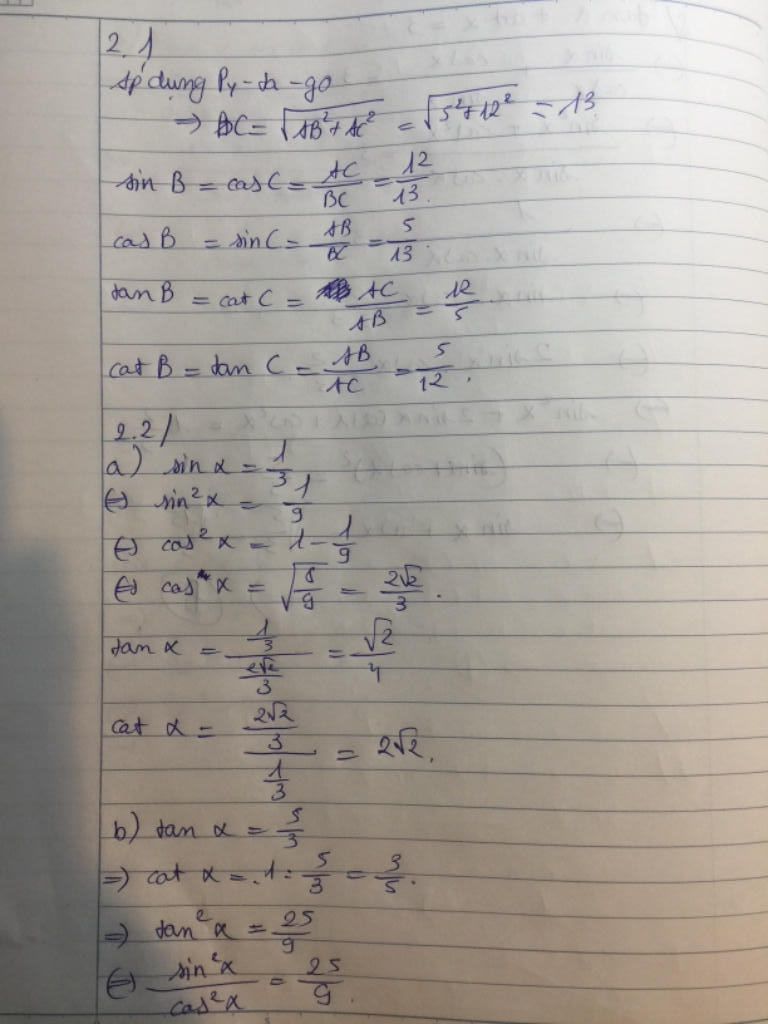 2.1
Áp dụng Py-ta-go
=> BC = √(AB² + AC²) = √(5² + 12²) = 13
sin B = cos C = AC/BC = 12/13.
cos B = sin C = AB/BC = 5/13.
tan B = cot C = AC/AB = 12/5.
cot B = tan C = AB/AC = 5/12.
2.2/
a) sin α = 1/3
(=) sin² α = 1/9
(=) cos² α = 1 - 1/9
(=) cos α = √(8/9) = 2√2/3.
tan α = (1/3)/(2√2/3) = √2/4
cot α = (2√2/3)/(1/3) = 2√2.
b) tan α = 5/3
=) cot α = 1 : 5/3 = 3/5.
=) tan² α = 25/9
(=) sin² α/cos² α = 25/9.